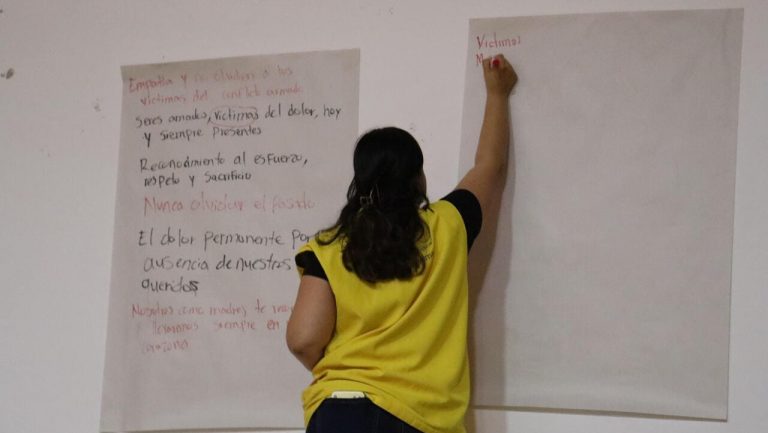 Empatia y no olvidar a las
victimas del conflicto armado
seres amados, victimas del dolor, hoy
y siempre presentes
Reconocimiento al esfuerzo,
respeto y sacrificio
Nunca olvidar el pasado
El dolor permanente por
ausencia de nuestros
queridos
Nosotras como madres te
llevamos siempre en
corazon
Victimas
M